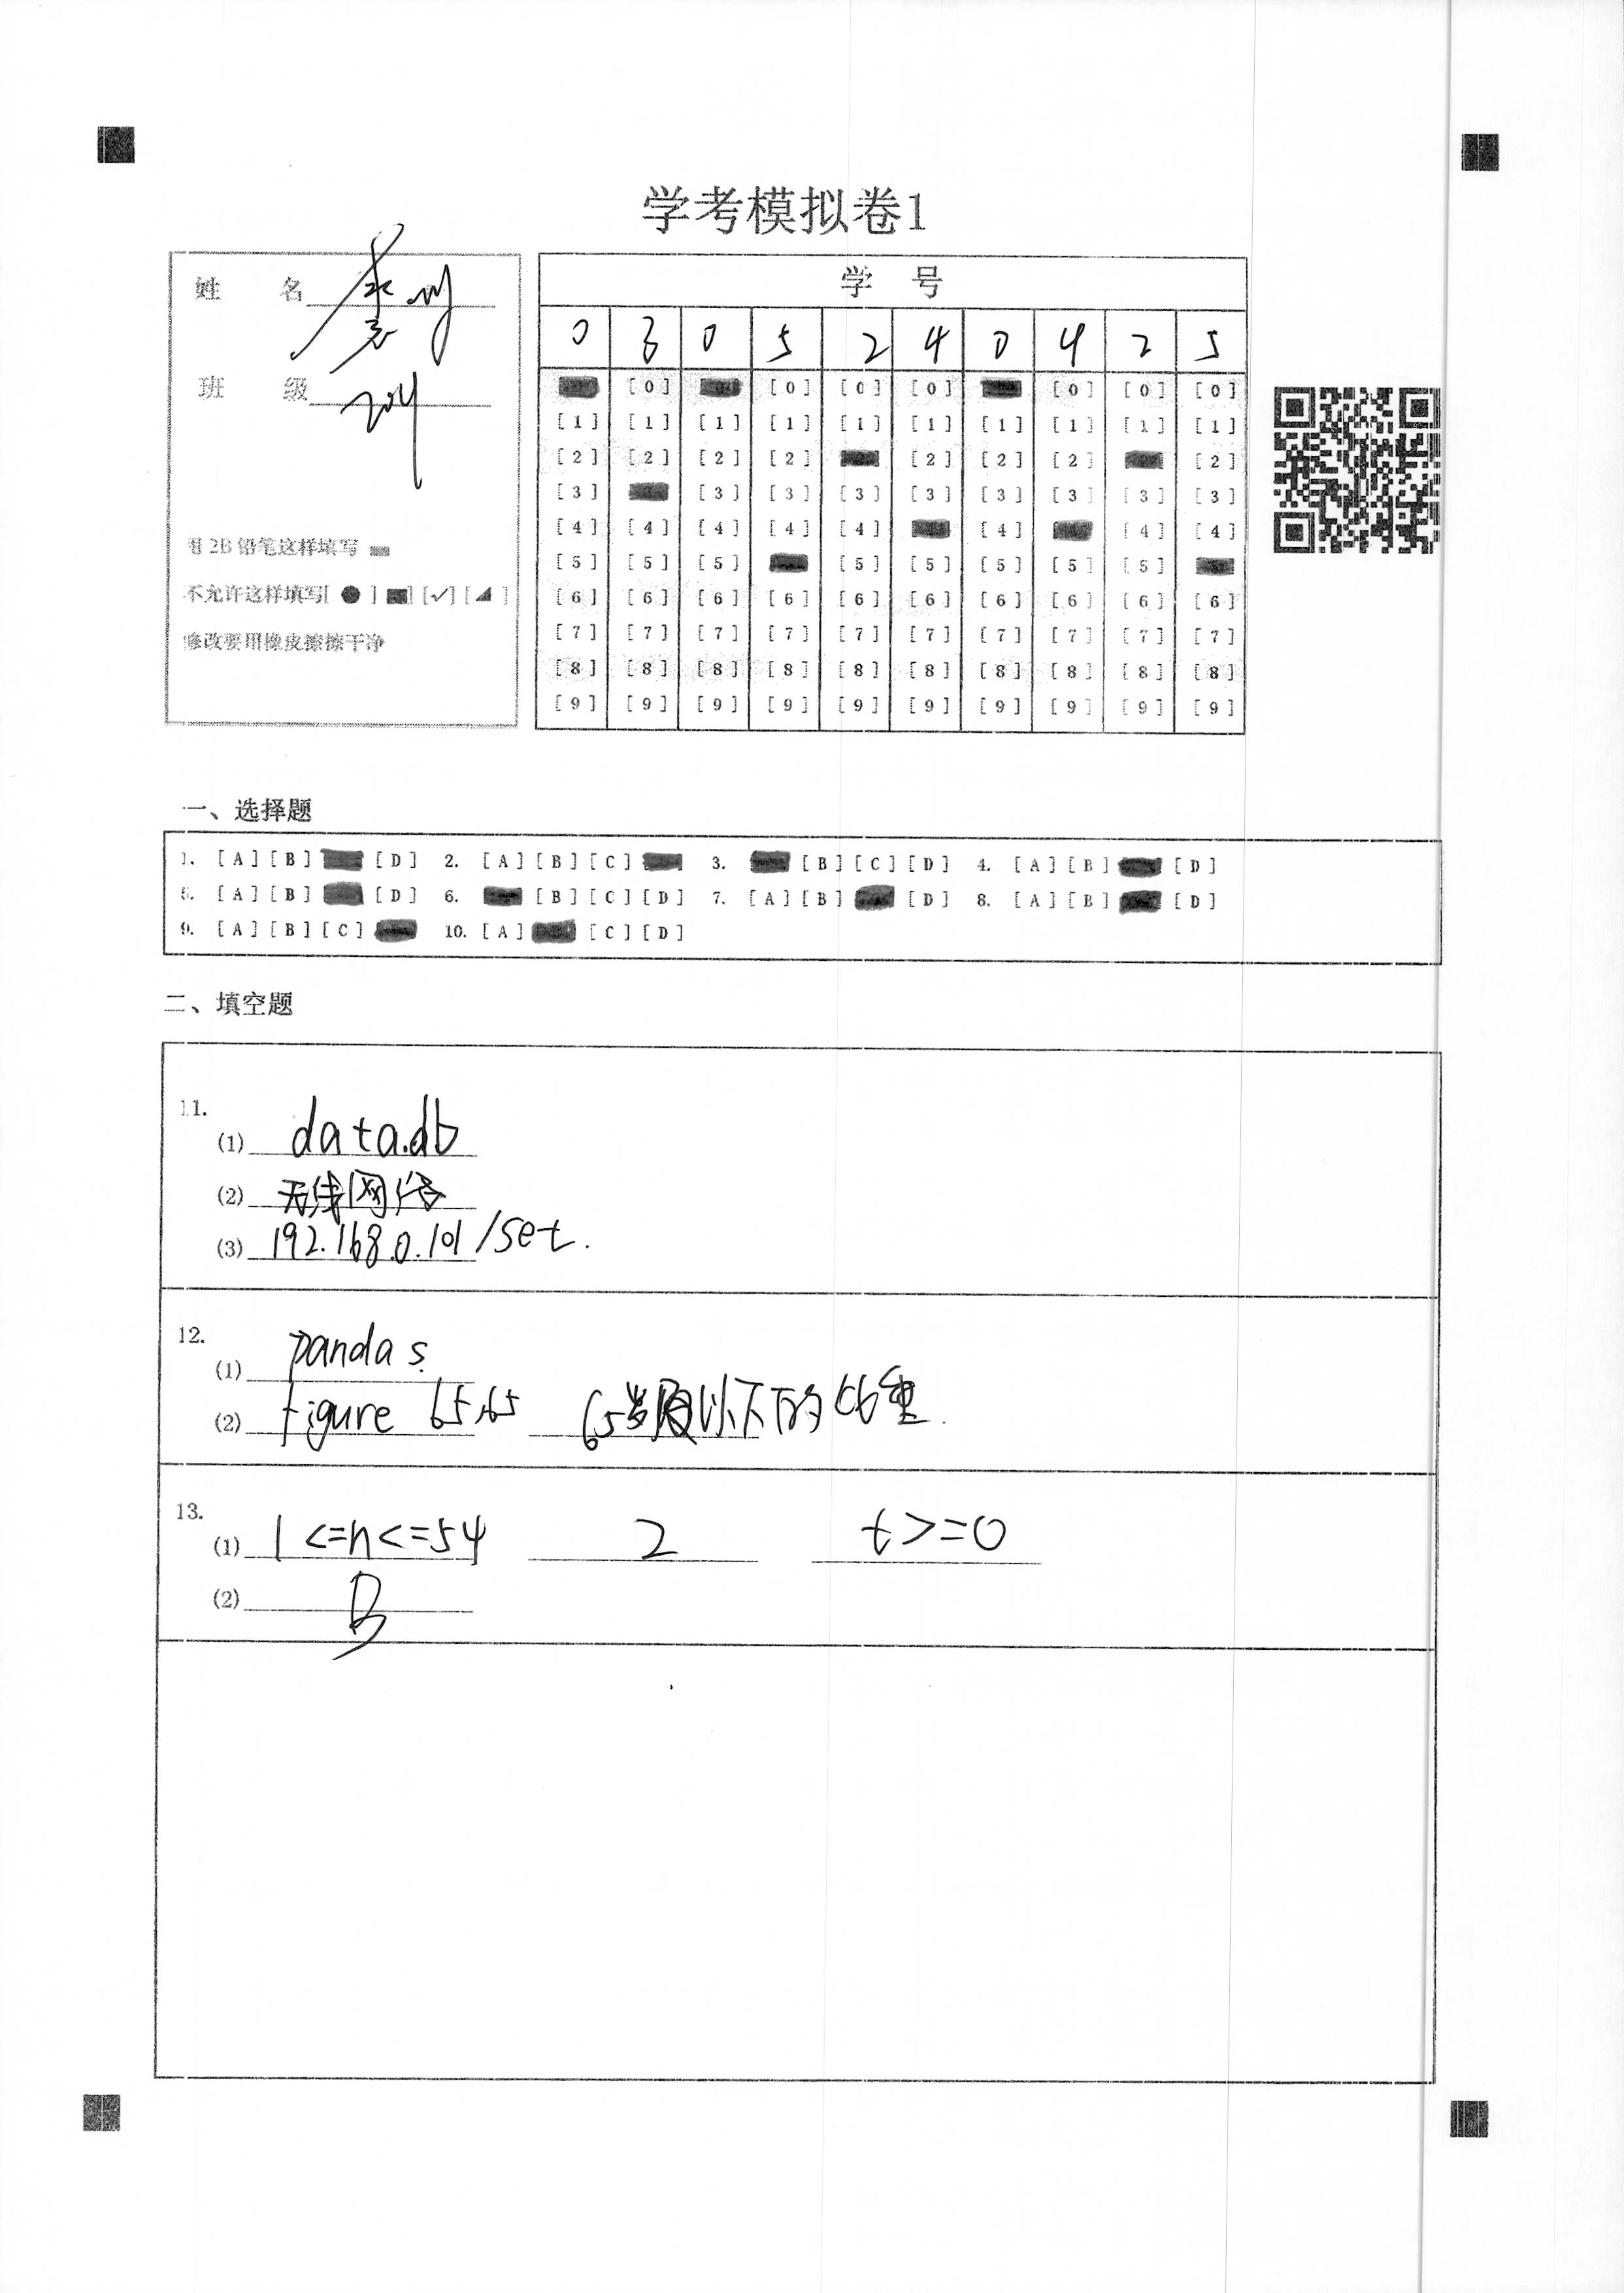 学考模拟卷1
姓 名
班 级 204
用 2B 铅笔这样填写
不允许这样填写[ ● ] [■] [✓] [◢ ]
修改要用橡皮擦擦干净
学 号
0 3 0 5 2 4 0 4 2 5
[0] [0] [0] [0] [0] [0] [0]
[1] [1] [1] [1] [1] [1] [1] [1] [1] [1]
[2] [2] [2] [2] [2] [2] [2] [2]
[3] [3] [3] [3] [3] [3] [3] [3] [3]
[4] [4] [4] [4] [4] [4] [4] [4]
[5] [5] [5] [5] [5] [5] [5] [5]
[6] [6] [6] [6] [6] [6] [6] [6] [6] [6]
[7] [7] [7] [7] [7] [7] [7] [7] [7] [7]
[8] [8] [8] [8] [8] [8] [8] [8] [8] [8]
[9] [9] [9] [9] [9] [9] [9] [9] [9] [9]
一、选择题
1. [A] [B] [D] 2. [A] [B] [C] 3. [B] [C] [D] 4. [A] [B] [D]
5. [A] [B] [D] 6. [B] [C] [D] 7. [A] [B] [D] 8. [A] [B] [D]
9. [A] [B] [C] 10. [A] [C] [D]
二、填空题
11.
(1) data.db
(2) 无线网络
(3) 192.168.0.101/set.
12.
(1) pandas
(2) figure 65岁 以下的
13.
(1) 1<=n<=54 2 t>=0
(2) B